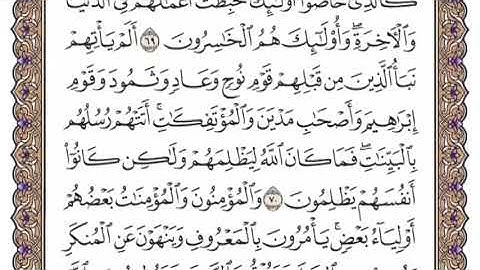 كَٱلَّذِى خَاضُوٓا۟ أُو۟لَٰٓئِكَ حَبِطَتْ أَعْمَٰلُهُمْ فِى ٱلدُّنْيَا
وَٱلْءَاخِرَةِ ۖ وَأُو۟لَٰٓئِكَ هُمُ ٱلْخَٰسِرُونَ ٦٩ أَلَمْ يَأْتِهِمْ
نَبَأُ ٱلَّذِينَ مِن قَبْلِهِمْ قَوْمِ نُوحٍ وَعَادٍ وَثَمُودَ وَقَوْمِ
إِبْرَٰهِيمَ وَأَصْحَٰبِ مَدْيَنَ وَٱلْمُؤْتَفِكَٰتِ ۚ أَتَتْهُمْ رُسُلُهُم
بِٱلْبَيِّنَٰتِ ۖ فَمَا كَانَ ٱللَّهُ لِيَظْلِمَهُمْ وَلَٰكِن كَانُوٓا۟
أَنفُسَهُمْ يَظْلِمُونَ ٧٠ وَٱلْمُؤْمِنُونَ وَٱلْمُؤْمِنَٰتُ بَعْضُهُمْ
أَوْلِيَآءُ بَعْضٍ ۚ يَأْمُرُونَ بِٱلْمَعْرُوفِ وَيَنْهَوْنَ عَنِ ٱلْمُنكَرِ